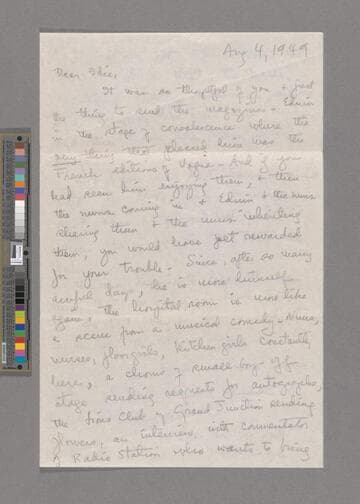 Aug 4, 1949
Dear Elsie,
It was so thoughtful of you & just
the thing to send the magazines - Edwin
in the stage of convalescence where the
thing that pleased him was the
French editions of Vogue - And if you
had seen him enjoying them, & then
the nurse coming in & Edwin & the nurse
sharing them & the nurse
them, you would have felt rewarded
for your trouble - Since, after so many
awful days, he is more himself
again, the hospital room is more like
a scene from a musical comedy - Nurses,
nurses, floor girls, kitchen girls constantly
here, a chorus of small boys off
stage sending requests for autographs,
the Lions Club of Grand Junction sending
flowers, an interview with commentator
of Radio Station who wants to bring